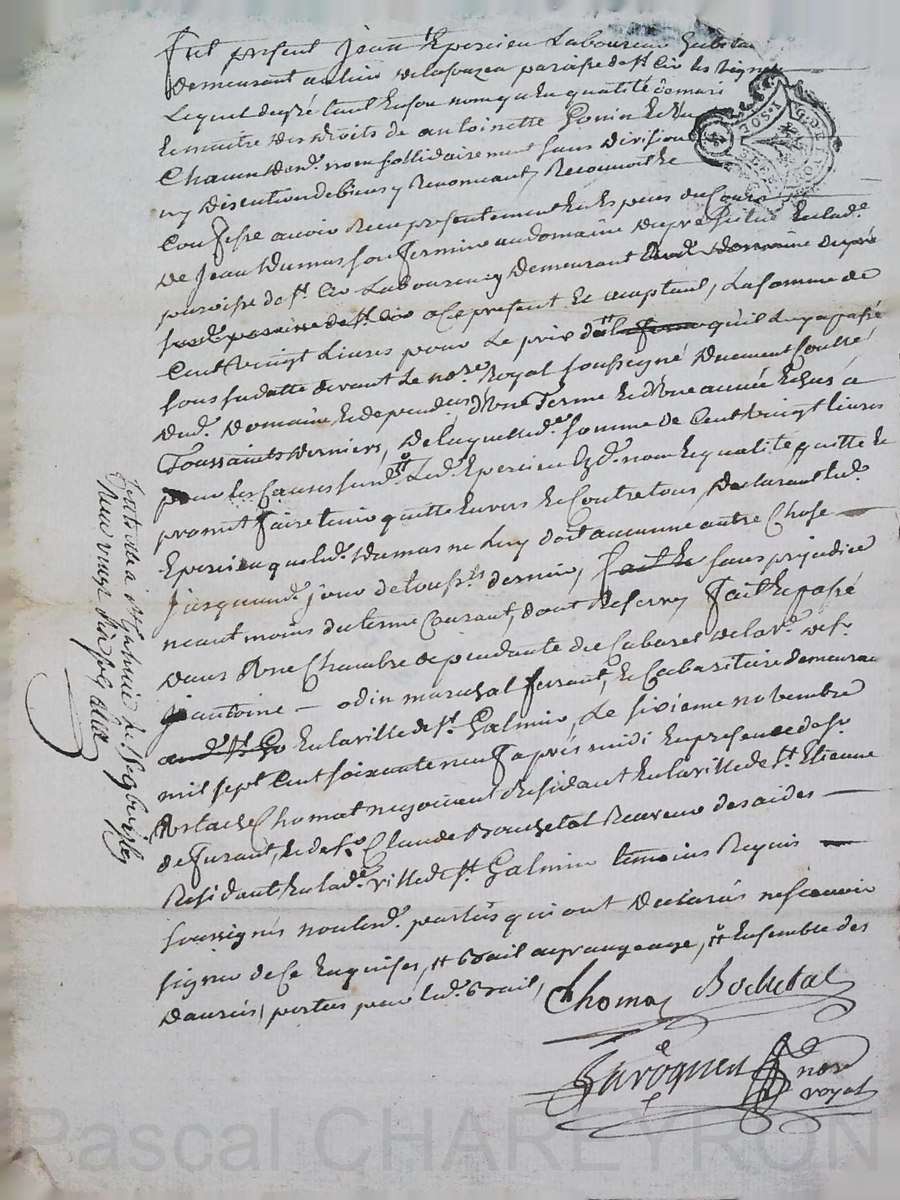 Fut présent Jean Epercieu Laboureur
demeurant au lieu de paroisse de st Cir les vignes
Lequel de gré tant en son nom qu'en qualité de mari
Et maitre des droits de antoinette Ponin
Chacun desd. noms sollidairement sans Division
ny Discution de biens y Renonceant, Reconnoit Et
Confesse avoir Recu presentement En Especes du Cours
de Jean Dumas son fermier au domaine Dupré En lad.e
paroisse de st. Cir Laboureur y Demeurant
a Ce present Et acceptant, La somme de
Cent vingt Livres pour Le prix qu'il luy a passé
sous sa datte devant Le no.re Royal soussigné Duement Controllé
Dud. Domaine Et dependces D'une Terme Et D'une année Echus a
Toussaints Derniers, De laquelle d. somme de Cent vingt livres
pour les Causes susd. Led. Epercieu Esd. noms Et qualité quitte Et
promet faire tenir quitte Envers Et Contre tous, Declarant led.
Epercieu que led. Dumas ne Luy doit aucune autre Chose
jusqu'aud. jour de touss.ts dernier, fait Et sans prejudice
neant moins du terme Courant, dont Reserve, fait Et passé
dans Une Chambre dependante du Cabaret de la v.e de s.r
antoine odin marechal ferrant, Et Cabaretier demeurant
En la ville de st. Galmier, Le sixieme novembre
mil sept Cent soixante neuf après midi En presence de sr
Chomat negociant Residant En la ville de st Etienne
de furant, Et de sr Claude Bochetal Receveur des aides
Residant En lad.e ville de st Galmier temoins Requis
soussignés non lesd. parties qui ont declarés ne scavoir
signer de Ce Enquises, # Bail a # Ensemble des
portés par led. Bail,
Chomat Bochetal
Laroque
nore
royal
a st Galmier le
neuf
Pascal CHAREYRON